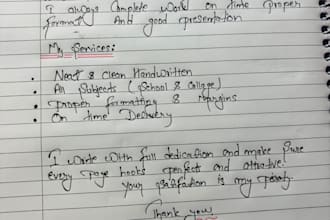 I always Complete work on time proper
format. And good presentation
My Services:
• Neat & Clean Handwritten
• All Subjects (School & College)
• Proper formatting & Margins
• On time Delivery
I work with full dedication and make sure
every page looks perfect and attractive
your satisfaction is my
Thank you